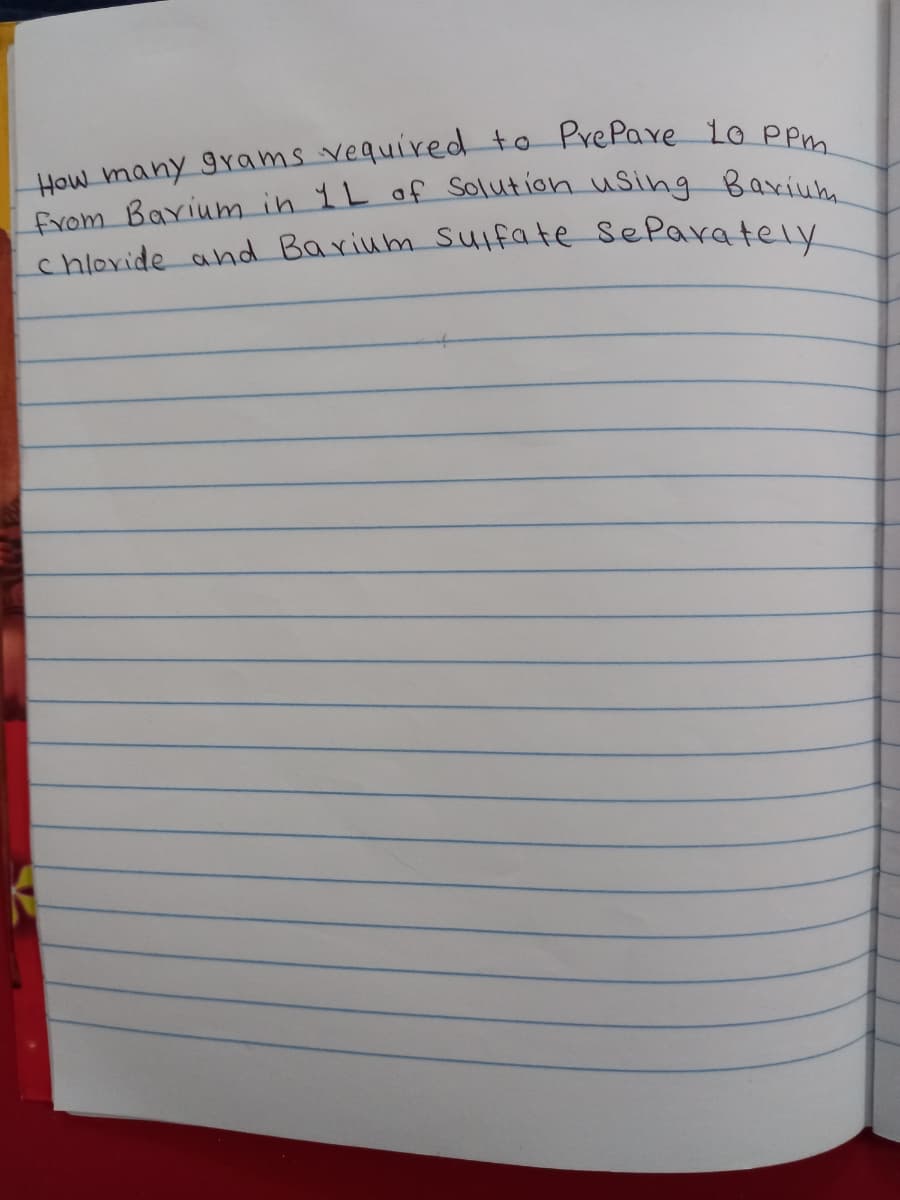 How many grams required to PrePare 10 PPm
From Barium in 1L of Solution using Barium
chloride and Barium Sulfate SeParately